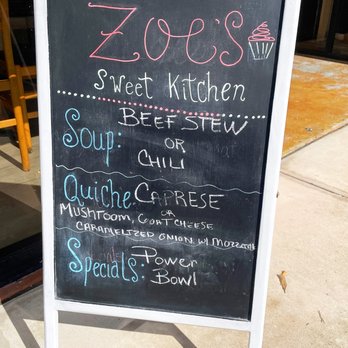 ZOE'S
Sweet Kitchen
Soup: BEEF STEW
OR
CHILI
Quiche: CAPRESE
OR
MUSHTROOM, GOAT CHEESE
CARAMELIZED ONION W/ MOZZ
Specials: POWER
BOWL